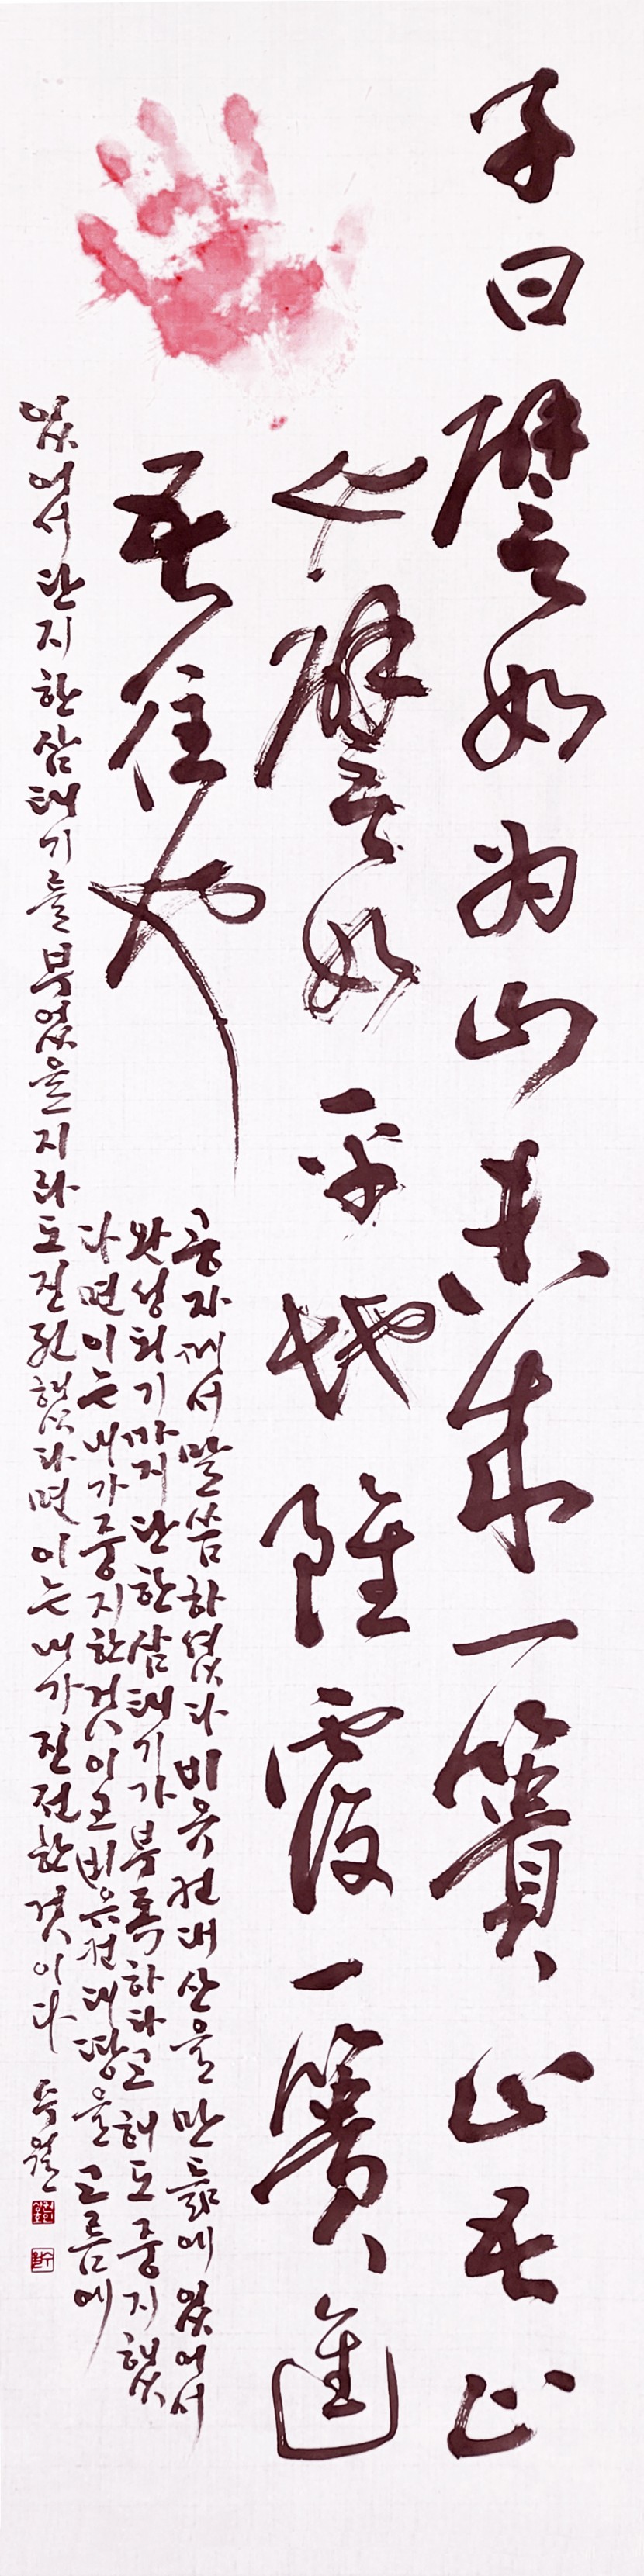 子曰譬如為山未成一簣止吾止
也譬如平地雖覆一簣進
吾往也
공자께서 말씀하셨다 비유컨대 산을 만듦에 있어서
완성되기까지 단 한 삼태기가 부족하다고 해도 중지했
다면 이는 내가 중지한 것이고 비유컨대 땅을 고름에
있어서 단지 한 삼태기를 부었을지라도 진전했다면 이는 내가 진전한 것이다